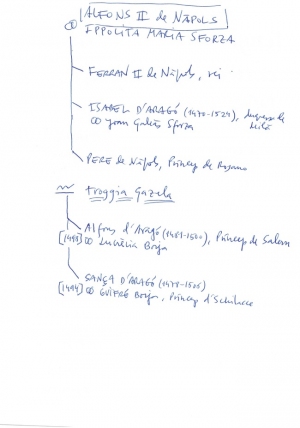 ALFONS II de NÀPOLS
IPPOLITA MARIA SFORZA
FERRAN II de Nàpols, rei
ISABEL D'ARAGÓ (1470-1524), duquessa de Milà
∞ Joan Galeàs Sforza
PERE de Nàpols, Príncep de Rossano
Troggia Gazela
Alfons d'Aragó (1481-1500), Príncep de Salern
[1498] ∞ Lucrècia Borja
SANÇA D'ARAGÓ (1478-1506)
[1494] ∞ GUIFRÉ Borja, Príncep d'Schilace